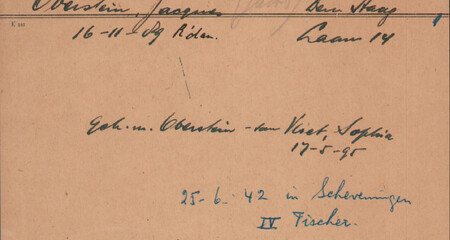 Oberstein, Jacques Den Haag
K 202
16-11-89 R'dam. Laan 14
Geh. m. Oberstein - van Vliet, Sophia
17-5-95
25-6-42 in Scheveningen
IV Fischer.